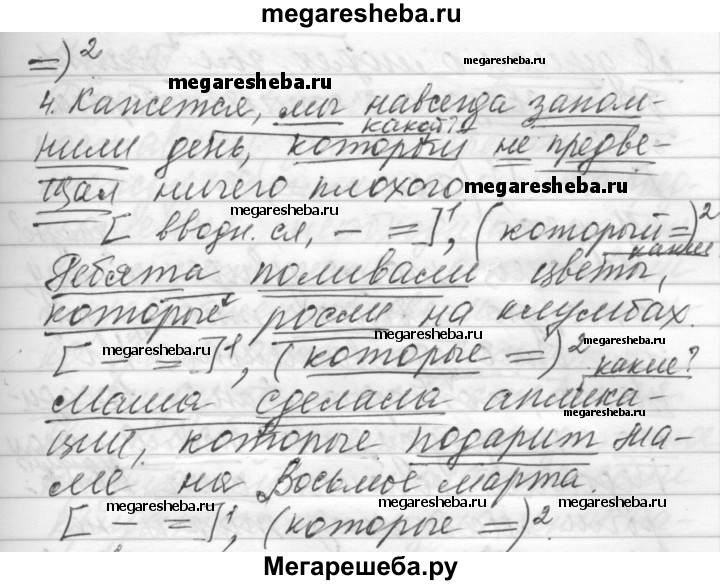 megaresheba.ru
=)²
megaresheba.ru
megaresheba.ru
4. Кажется, мы навсегда запом-
какой?
нили день, который не предве-
щал ничего плохого.
megaresheba.ru
megaresheba.ru
[вводн. сл, – =]¹, (который =)²
какие
Ребята поливали цветы,
которые росли на клумбах.
megaresheba.ru
[– =]¹, (которые =)²
megaresheba.ru
megaresheba.ru
какие?
Маша сделала аплика-
megaresheba.ru
ции, которые подарит ма-
ме на Восьмое марта.
megaresheba.ru
megaresheba.ru
[– =]¹, (которые =)².
Мегарешеба.ру